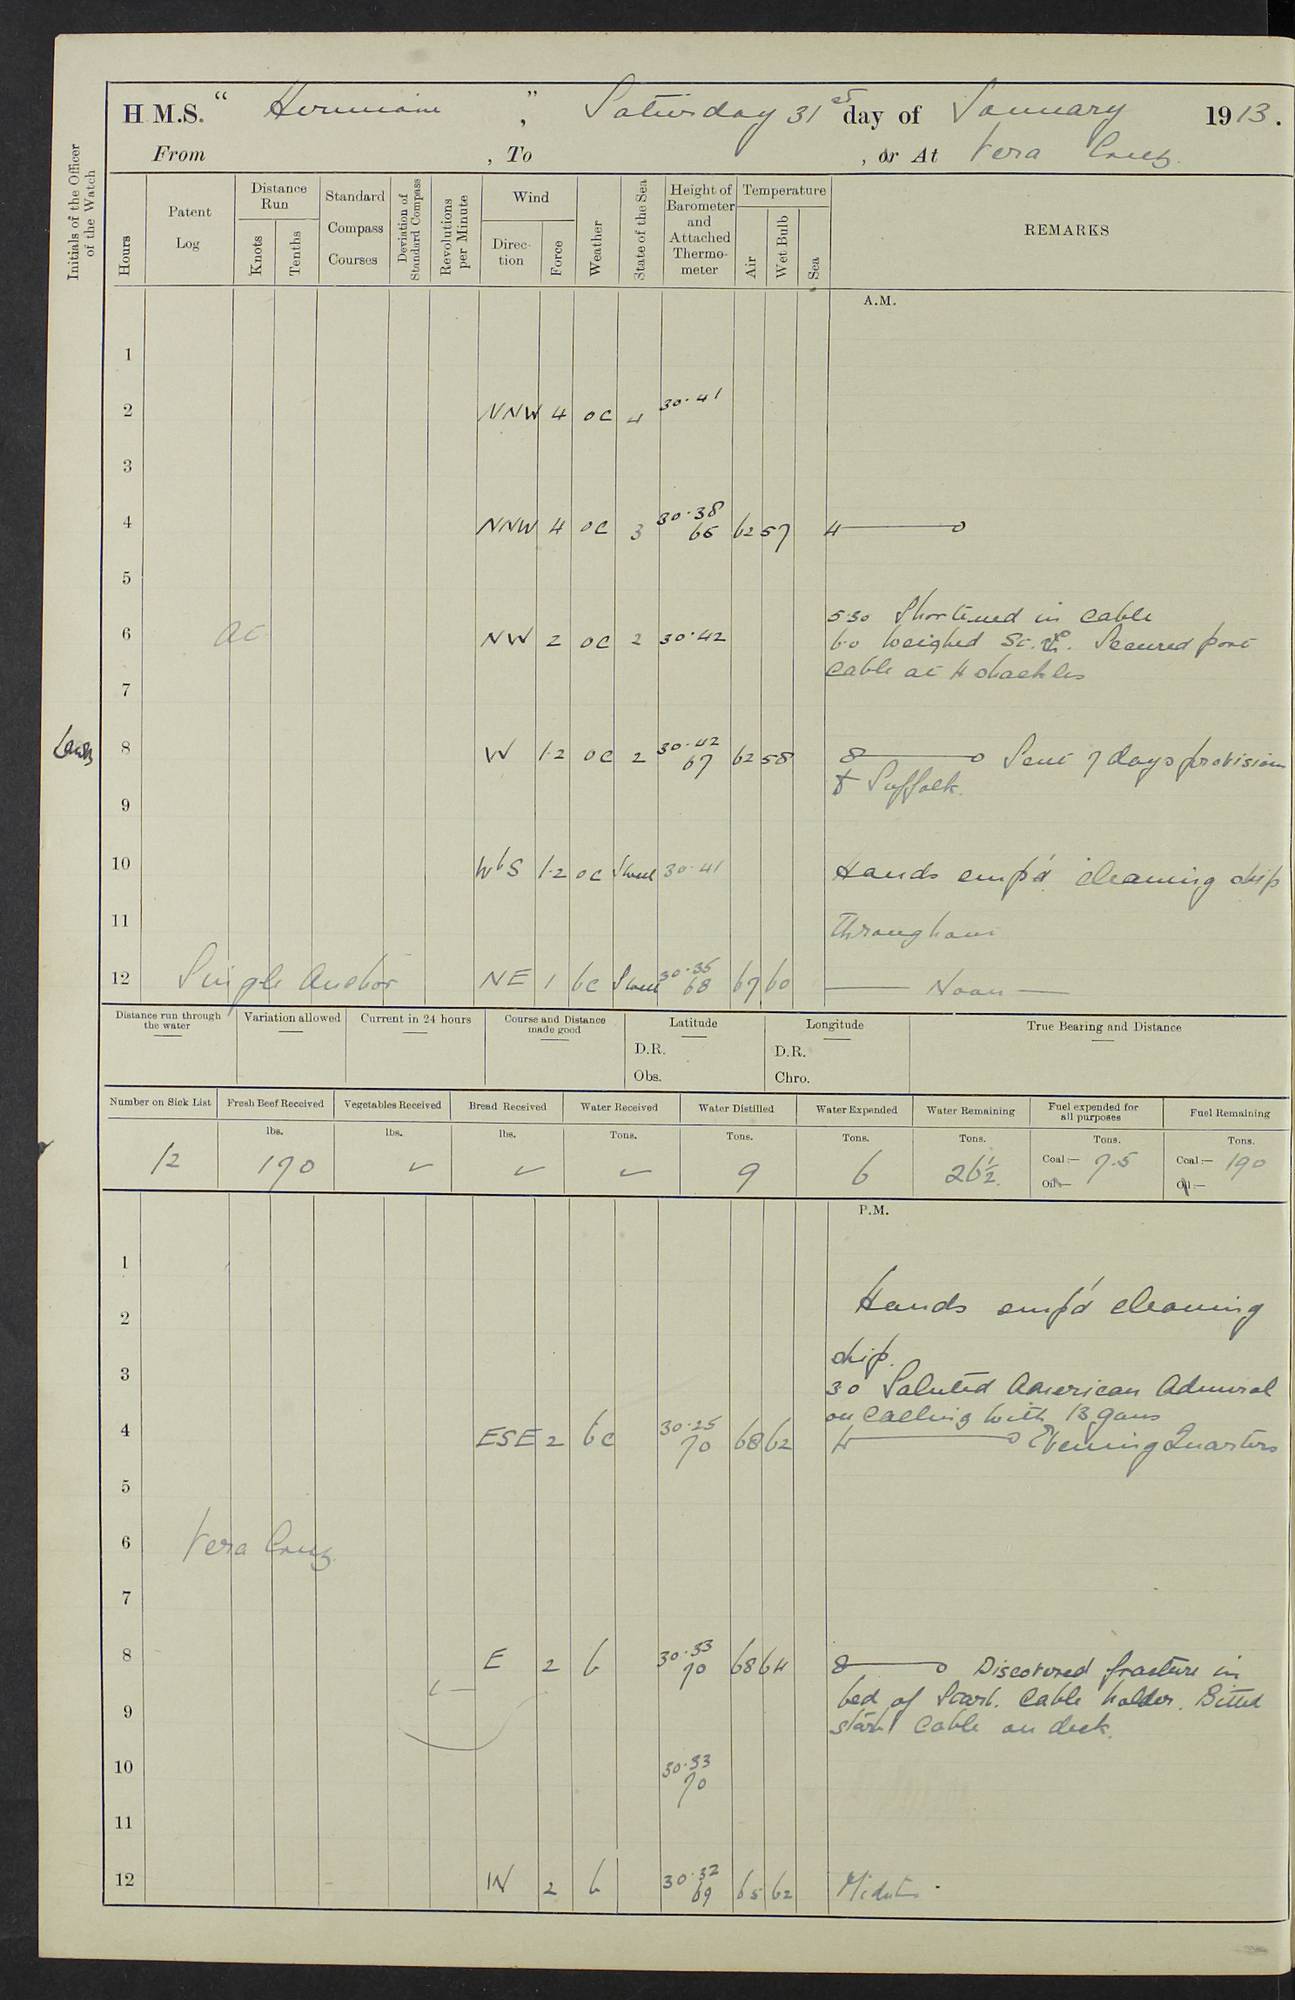 H M.S. " Hermione ", Saturday 31st day of January 1913.
From , To , or At Vera Cruz.
Initials of the Officer of the Watch
Hours
Patent Log
Distance Run
Knots
Tenths
Standard Compass Courses
Deviation of Standard Compass
Revolutions per Minute
Wind
Direction
Force
Weather
State of the Sea
Height of Barometer and Attached Thermometer
Temperature
Air
Wet Bulb
Sea
REMARKS
A.M.
1
2 NNW 4 oc 4 30.41
3
4 NNW 4 oc 3 30.38 65 62 57 4
5
5.30 Shortened in cable
6 at NW 2 oc 2 30.42 6.0 Weighed St. Secured port
cable at 4 shackles
7
8 W 1.2 oc 2 30.42 67 62 58 8 Sent 7 days provisions
to Suffolk.
9
10 WbS 1.2 oc 30.41 Hands emp'd cleaning ship
11 throughout
12 Single Anchor NE 1 bc 30.35 68 67 60 Noon
Distance run through the water
Variation allowed
Current in 24 hours
Course and Distance made good
Latitude
D.R.
Obs.
Longitude
D.R.
Chro.
True Bearing and Distance
Number on Sick List
Fresh Beef Received
Vegetables Received
Bread Received
Water Received
Water Distilled
Water Expended
Water Remaining
Fuel expended for all purposes
Fuel Remaining
lbs. lbs. lbs. Tons. Tons. Tons. Tons. Tons. Tons.
12 170 ✓ ✓ ✓ 9 6 26½ Coal:— 7.5 Coal:— 190
Oil:— Oil:—
P.M.
1
Hands emp'd cleaning
2
ship.
3 3.0 Saluted American Admiral
on calling with 13 guns
4 ESE 2 bc 30.25 70 68 62 4 Evening Quarters
5
6 Vera Cruz
7
8 E 2 b 30.33 70 68 64 8 Discovered fracture in
bed of Starb. Cable holder. Bitted
9 starb cable on deck.
10 30.33 70
11
12 2 b 30.32 69 65 62